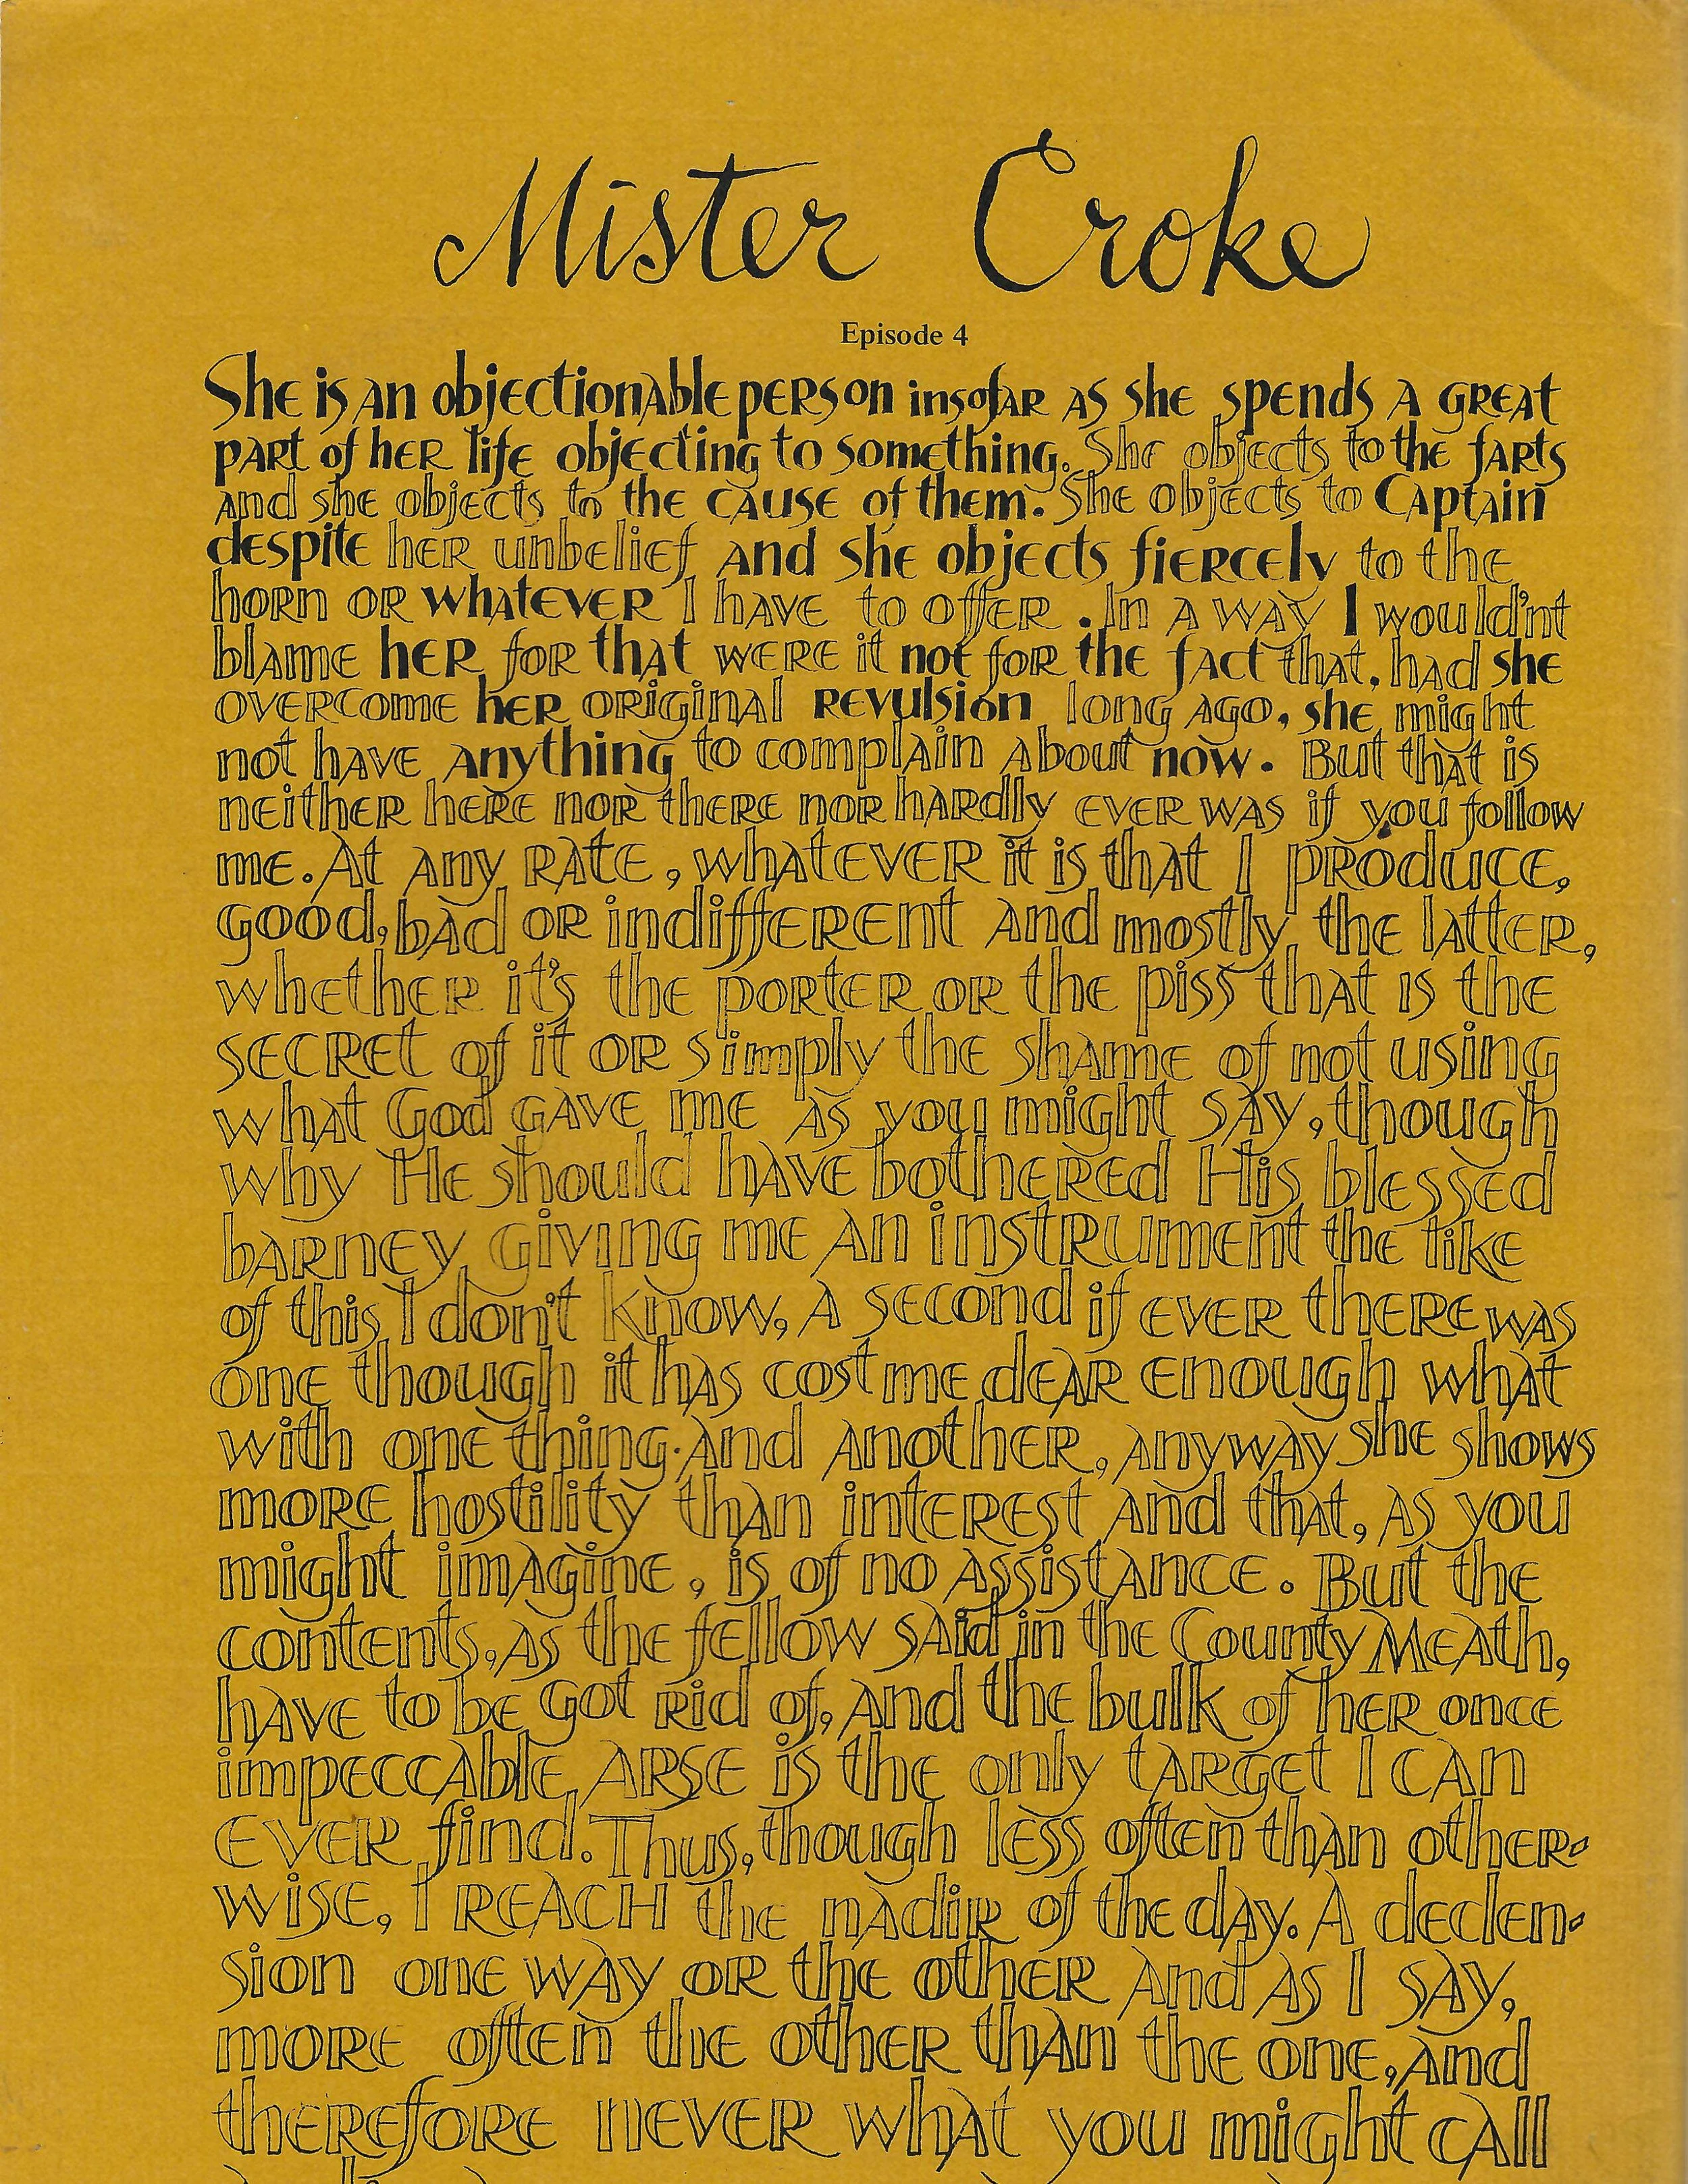 Mister Croke
Episode 4
She is an objectionable person insofar as she spends a great
part of her life objecting to something. She objects to the farts
and she objects to the cause of them. She objects to Captain
despite her unbelief and she objects fiercely to the
horn or whatever I have to offer. In a way I would'nt
blame her for that were it not for the fact that, had she
overcome her original revulsion long ago, she might
not have anything to complain about now. But that is
neither here nor there nor hardly ever was if you follow
me. At any rate, whatever it is that I produce,
good, bad or indifferent and mostly the latter,
whether it's the porter or the piss that is the
secret of it or simply the shame of not using
what God gave me as you might say, though
why He should have bothered His blessed
barney giving me an instrument the like
of this I don't know, a second if ever there was
one though it has cost me dear enough what
with one thing and another, anyway she shows
more hostility than interest and that, as you
might imagine, is of no assistance. But the
contents, as the fellow said in the County Meath,
have to be got rid of, and the bulk of her once
impeccable arse is the only target I can
ever find. Thus, though less often than other-
wise, I reach the nadir of the day. A declen-
sion one way or the other and as I say,
more often the other than the one, and
therefore never what you might call